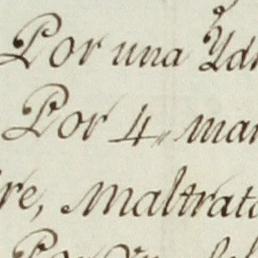 Por una Yd
Por 4 man
re, maltrat
Por